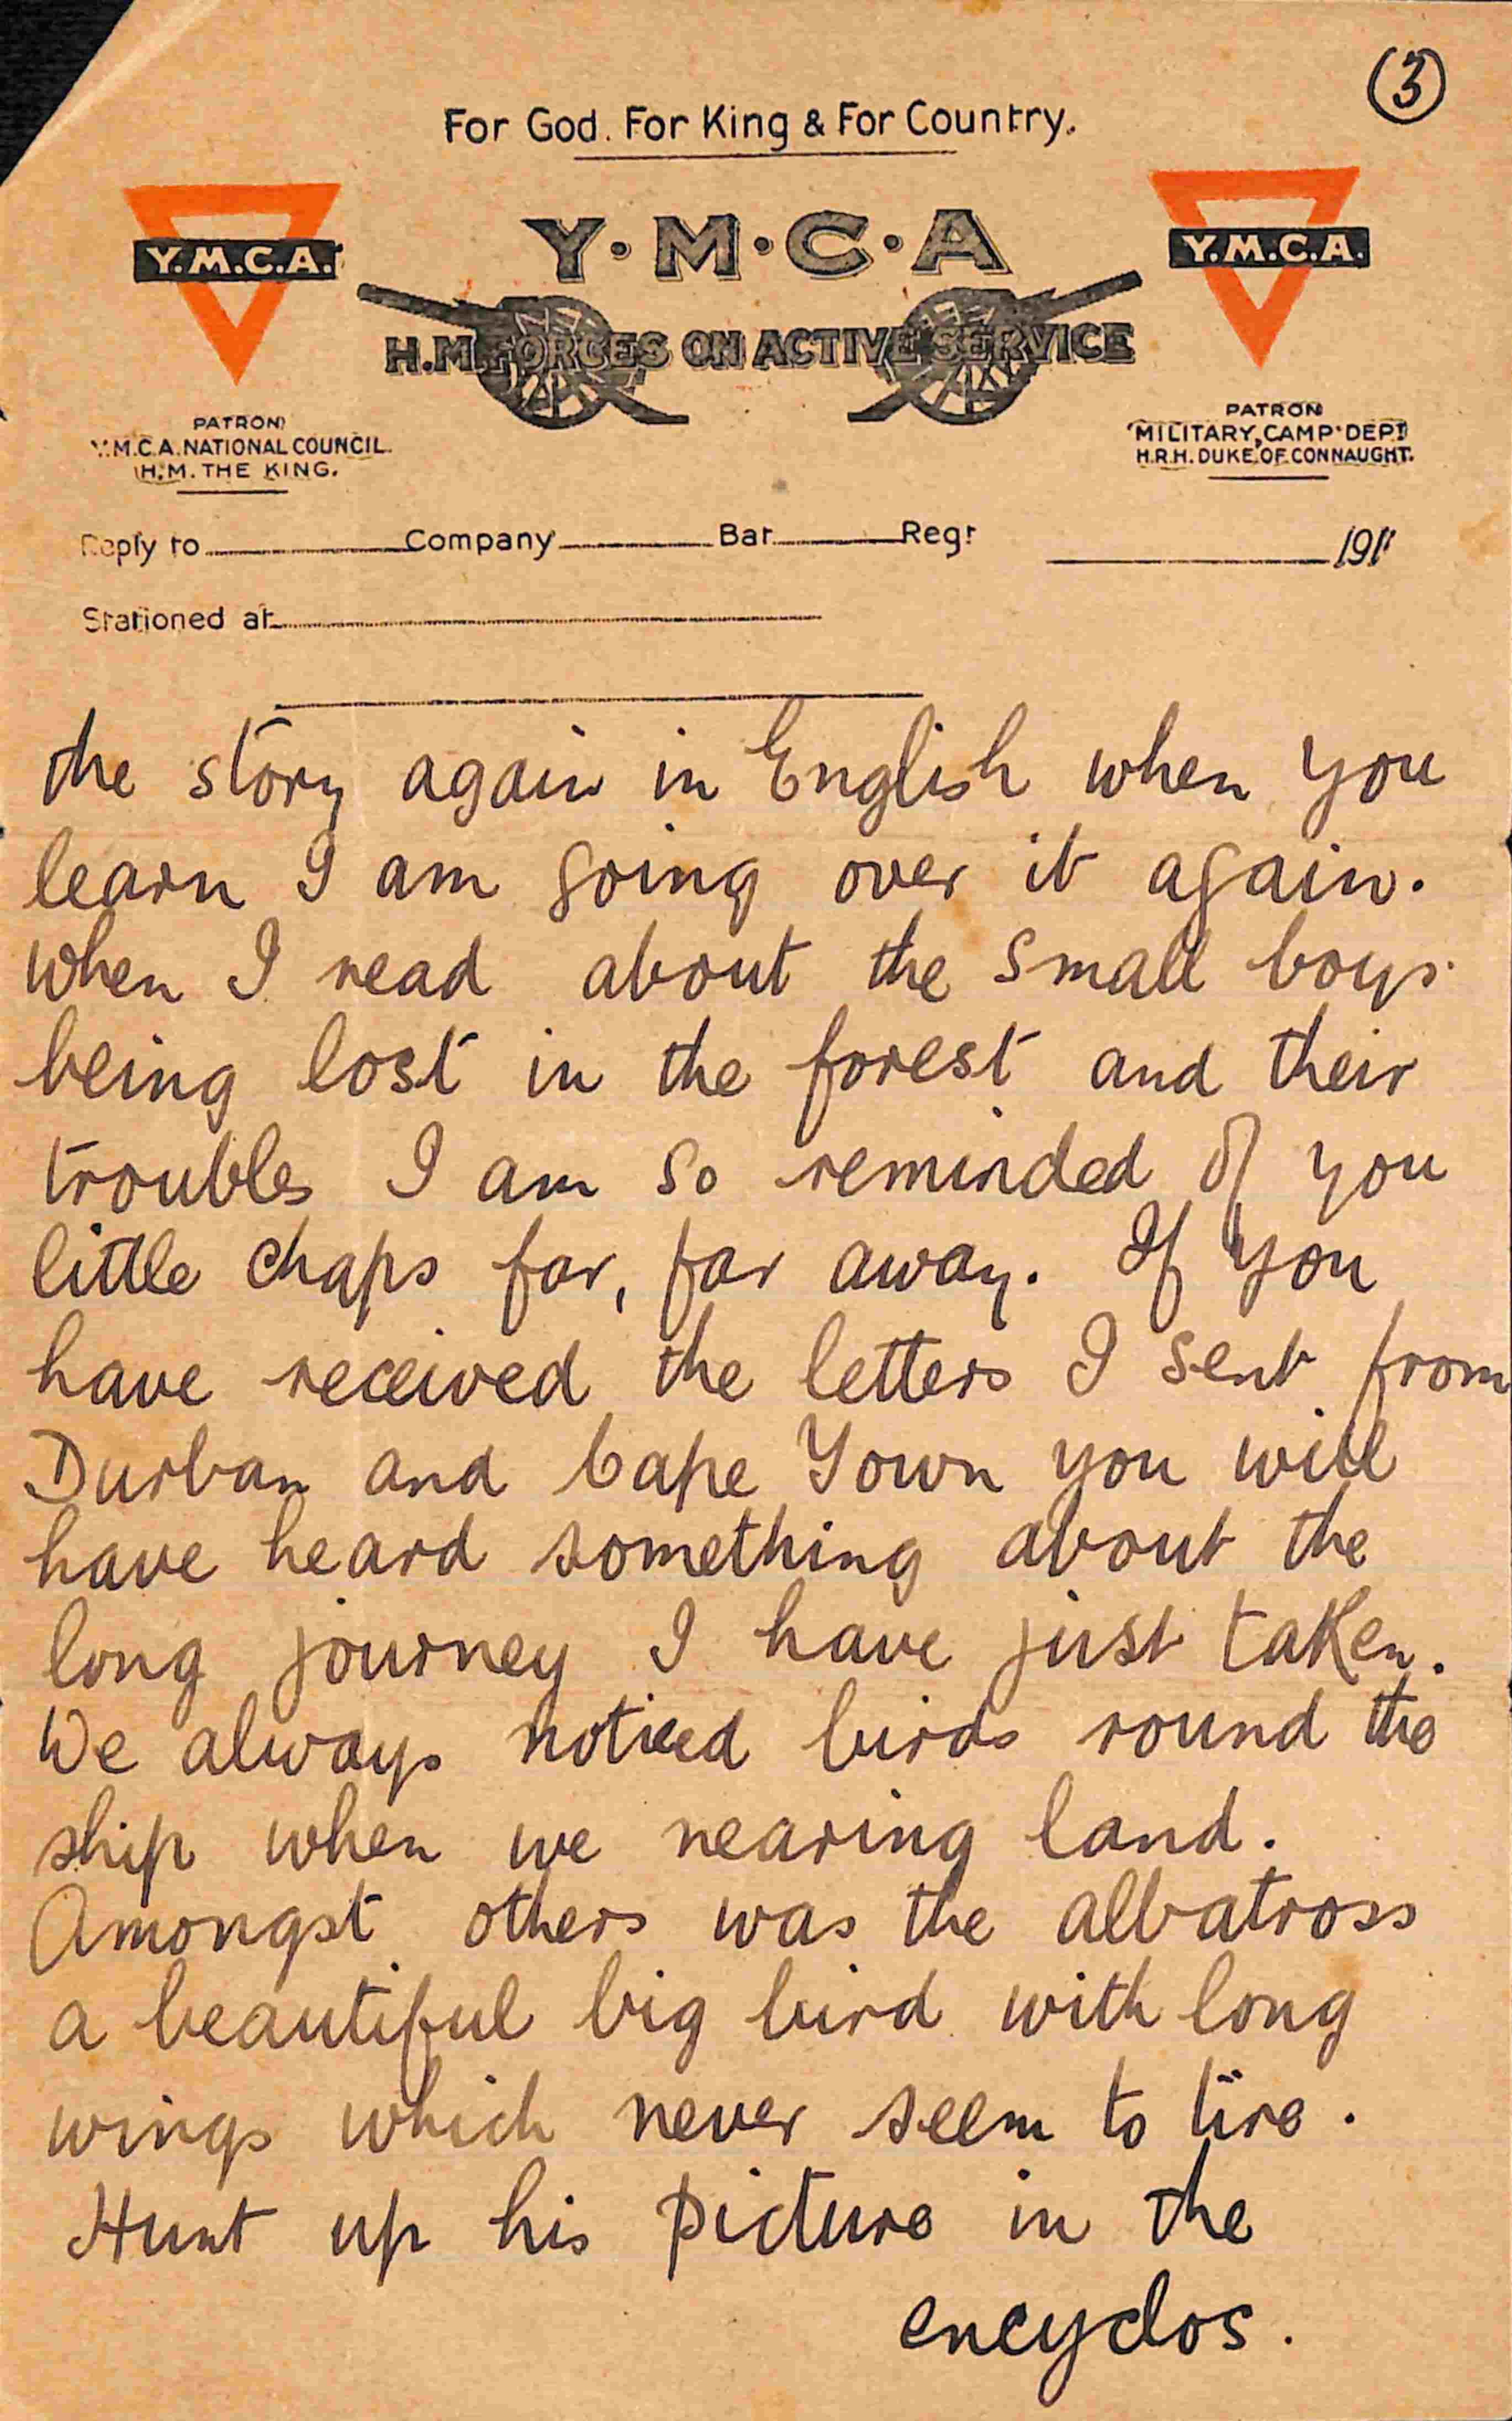 (3)
For God. For King & For Country.
Y.M.C.A.
Y·M·C·A
Y.M.C.A.
H.M. FORCES ON ACTIVE SERVICE
PATRON
Y.M.C.A. NATIONAL COUNCIL.
H.M. THE KING.
PATRON
MILITARY CAMP DEPT
H.R.H. DUKE OF CONNAUGHT.
Reply to Company Bat Regt 191
Stationed at
the story again in English when you
learn I am going over it again.
When I read about the small boys
being lost in the forest and their
troubles I am so reminded of you
little chaps far, far away. If you
have received the letters I sent from
Durban and Cape Town you will
have heard something about the
long journey I have just taken.
We always noticed birds round the
ship when we nearing land.
Amongst others was the albatross
a beautiful big bird with long
wings which never seem to tire.
Hunt up his picture in the
encyclos.